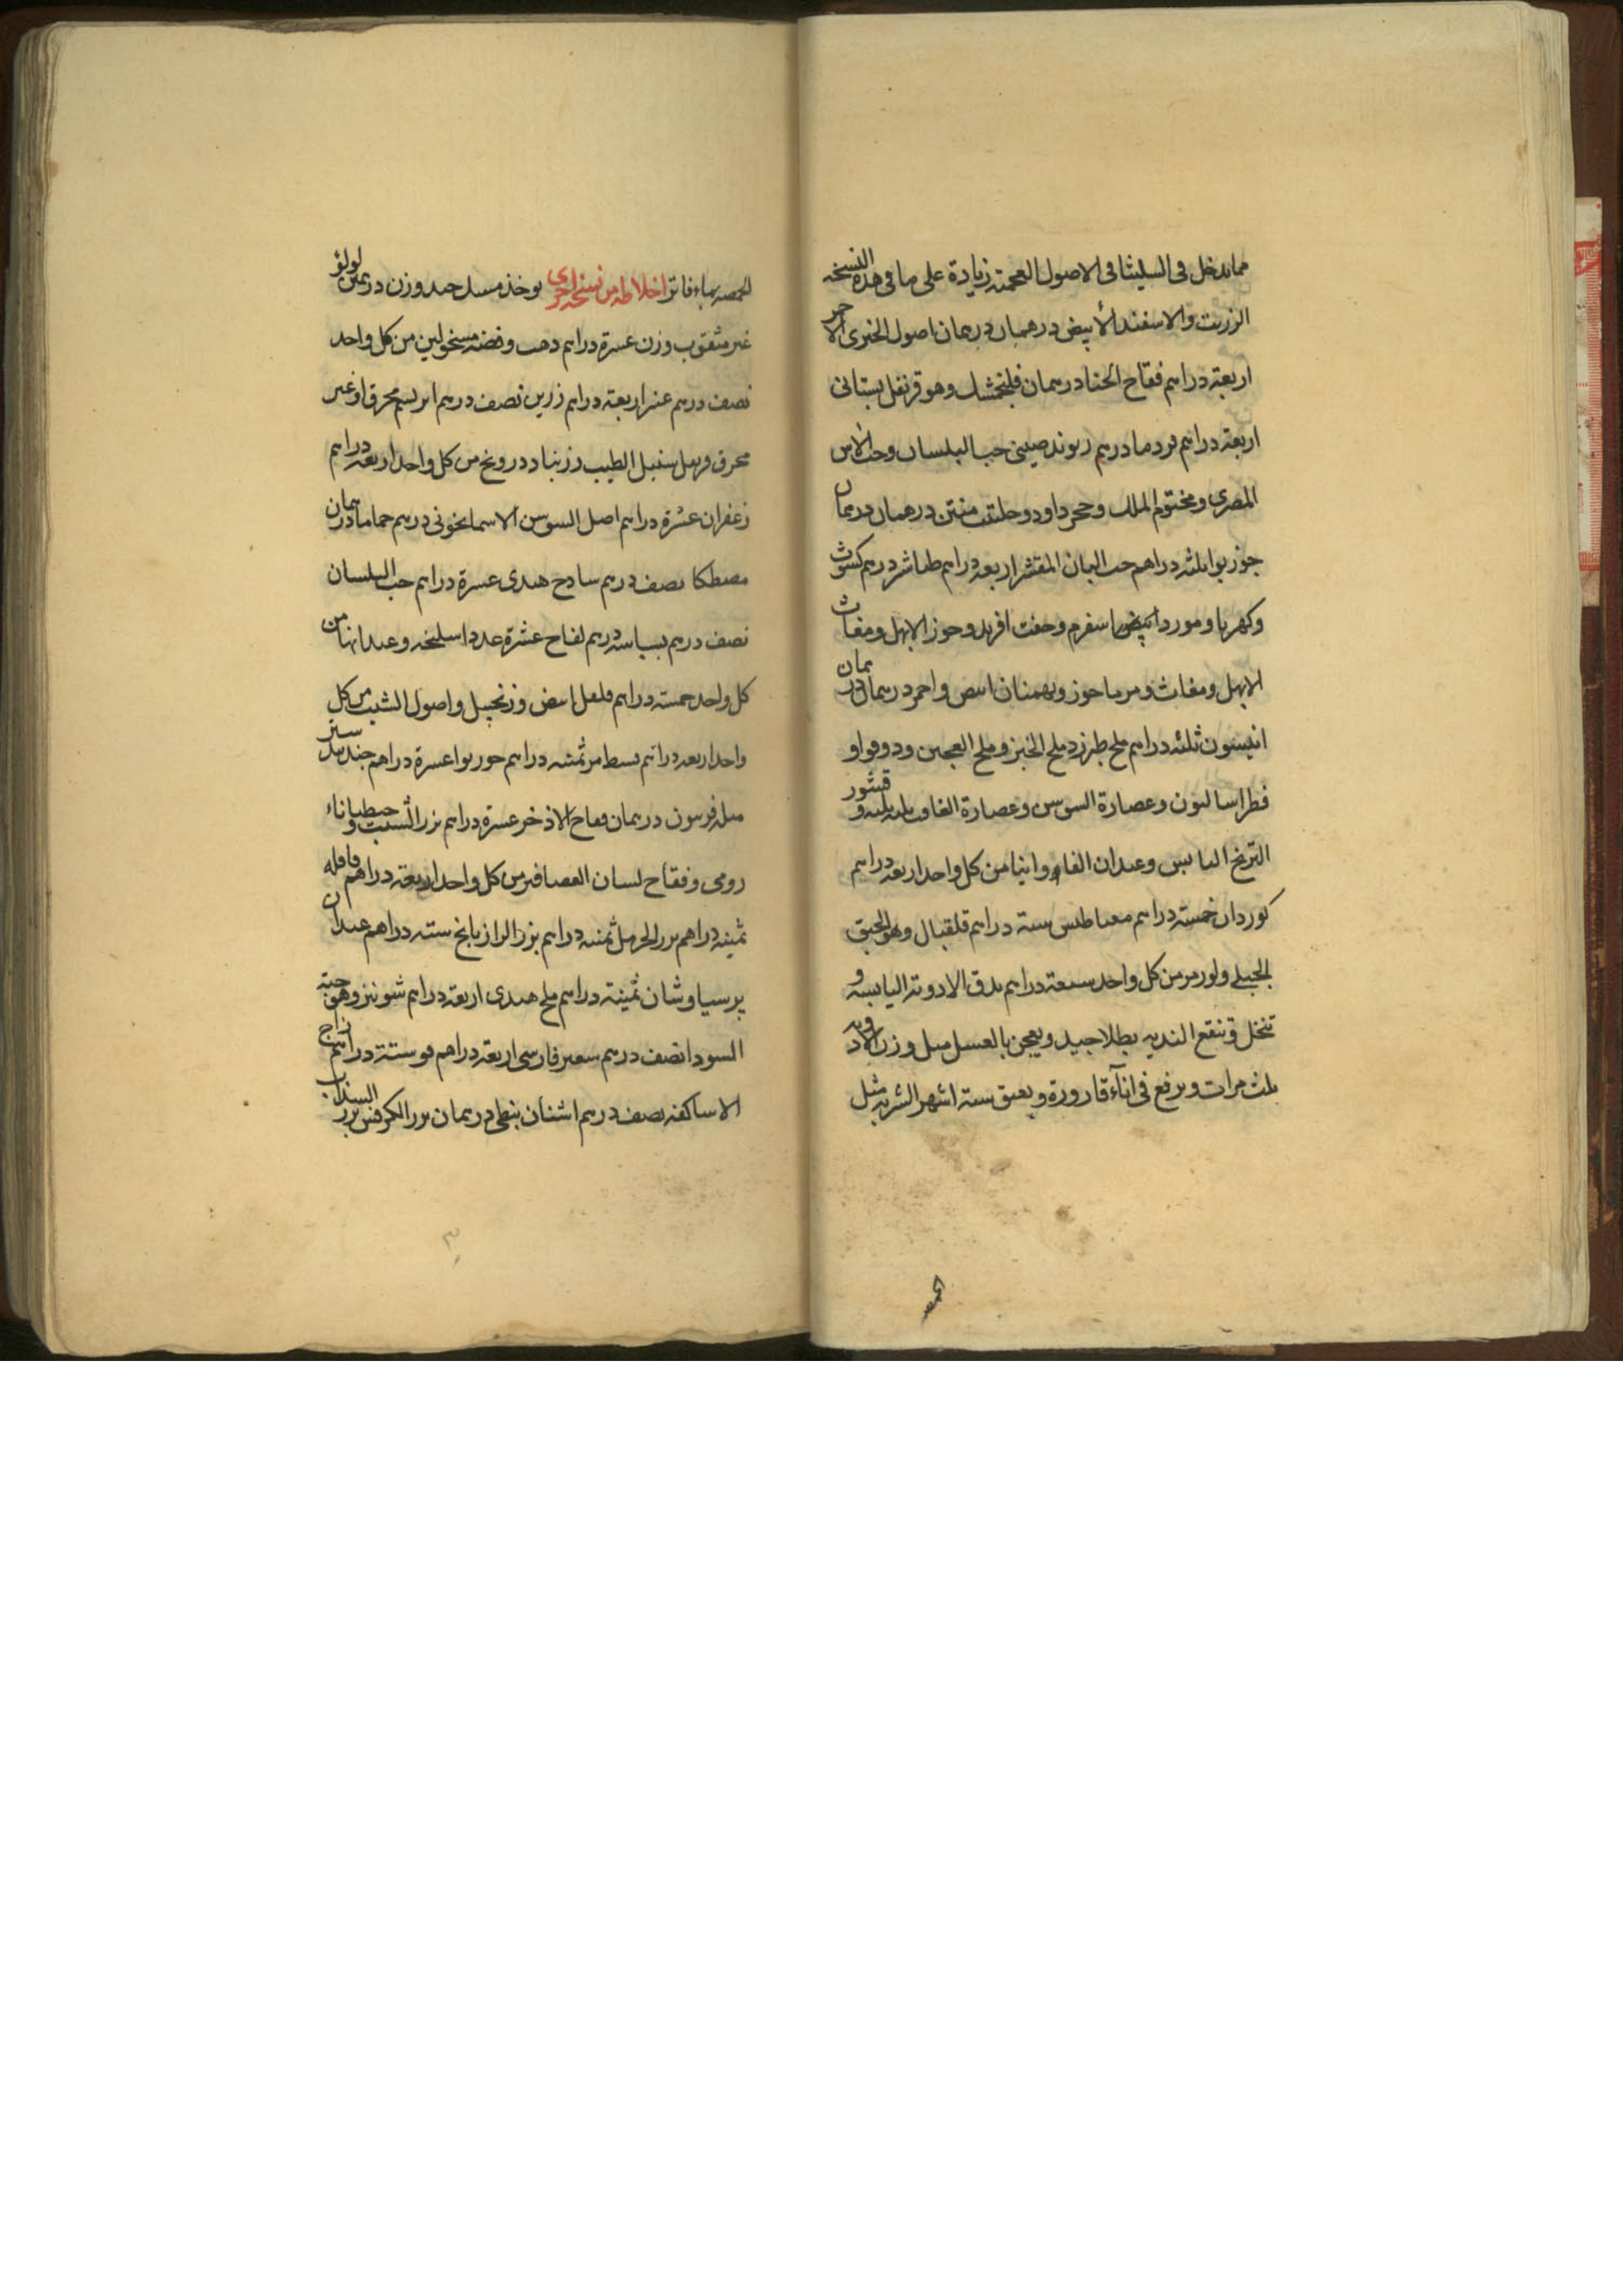 مما يدخل فى السليثا فى الاصول العجمية زيادة على ما فى هذه النسخه
الزرنب والاسفند الأبيض درهمان درهمان اصول الخيرى الاحمر
اربعة دراهم فقاح الحنا درهمان فلنجمشك وهو قرنفل بستانى
اربعة دراهم قردمادرهم ريوند صينى حب البلسان وحب الاس
المصرى ومختوم الملك وحجر داود وحلتيت منتن درهمان درهمان
جوز بوا ثلثه دراهم حب البان المقشر اربعه دراهم طباشير درهم كشوث
وكهربا ومورد اسفرم وجفت افريد وجوز الابهل ومغاث
الابهل ومغاث ومرماحوز وبهمنان ابيض واحمر درهمان درهمان
انيسون ثلثه دراهم ملح طبرزد ملح الخبز وملح العجين ودوقو او
فطراساليون وعصارة السوس وعصارة الغافت ثلثه ثلثه وقشور
الترنج اليابس وعيدان الفاوانيا من كل واحد اربعة دراهم
خمسة دراهم مغناطيس ستة دراهم وهو الحبق
الجبلى من كل واحد سبعة دراهم يدق الادوية اليابسه و
تنخل وينقع النديه بطلا جيد ويعجن بالعسل مثل وزن الادويه
ثلث مرات ويرفع فى انآء قارورة ويعتق ستة اشهر الشربه مثل
الحمصه
الحمصه بماء فاتر اخلاطه من نسخه اخرى يوخذ مسك جيد وزن درهمين لولؤ
غير مثقوب وزن عشرة دراهم ذهب وفضه مسحولين من كل واحد
نصف درهم عنبر اربعة دراهم زرين نصف درهم ابريسم محرق او غير
محرق وسنبل الطيب وزرنباد ودرونج من كل واحد اربعة دراهم
زعفران عشرة دراهم اصل السوسن الاسمانجونى درهم حماما درهمان
مصطكا نصف درهم سادج هندى عشرة دراهم حب البلسان
نصف درهم بسباسه درهم لفاح عشرة عددا سليخه وعيدانها من
كل واحد خمسة دراهم فلفل ابيض وزنجبيل واصول الشبث من كل
واحد اربعه دراهم قسط مر ثمنيه دراهم جوز بوا عشرة دراهم جندبيدستر
مثله فربيون درهمان فقاح الاذخر عشرة دراهم بزر الشبث وجنطيانا
رومى وفقاح لسان العصافير من كل واحد اربعة دراهم قاقله
ثمنيه دراهم بزر الحرمل ثمنيه دراهم بزر الرازيانج ستة دراهم عيدان
برسياوشان ثمنية دراهم ملح هندى اربعة دراهم شونيز وهو حبة
السودا نصف درهم سعتر فارسى اربعة دراهم فو ستة دراهم زاج
الاساكفه نصف درهم اشنان نبطى درهمان بزر الكرفس بزر السذاب
٣